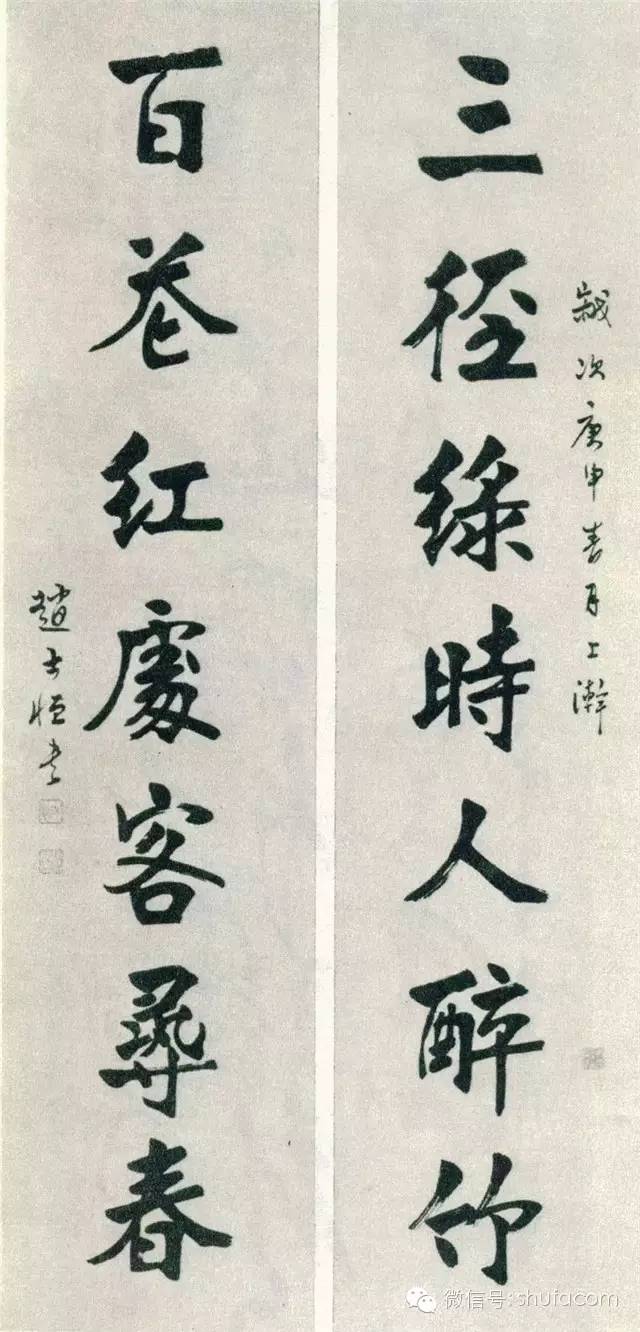 歲次庚申春月上澣
三徑綠時人醉竹
百巷紅處客尋春
趙士恒書
微信号:shufacom